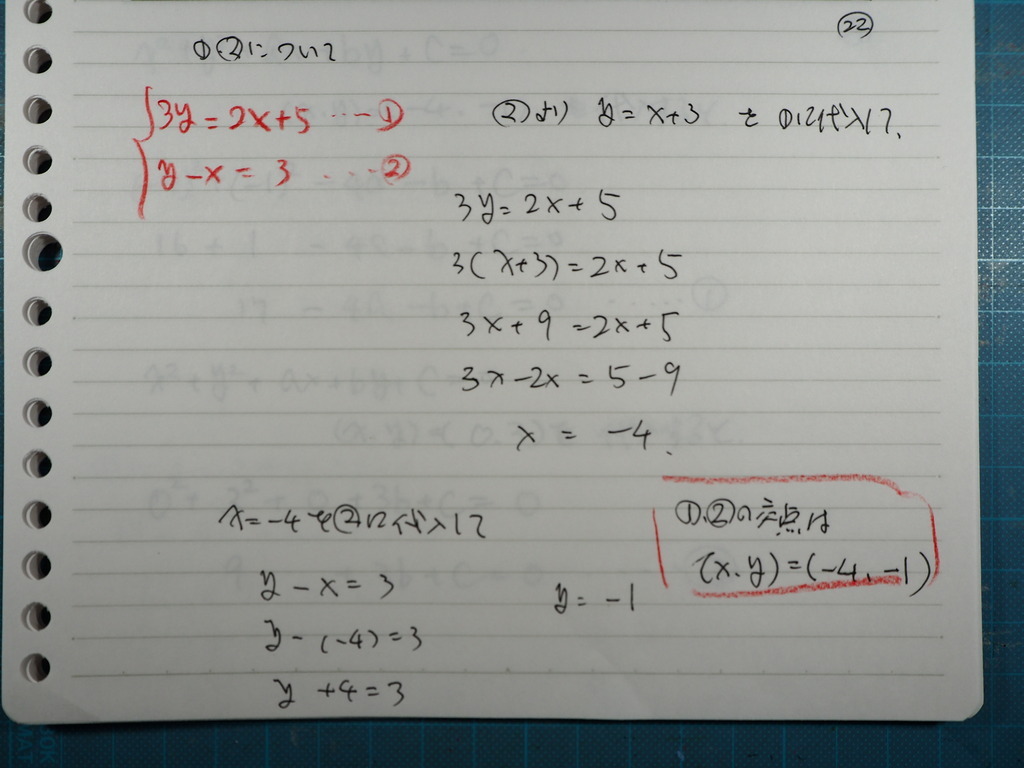 ㉒
①②について
3y=2x+5 …①
y-x=3 …②
②より y=x+3 を①に代入して、
3y=2x+5
3(x+3)=2x+5
3x+9=2x+5
3x-2x=5-9
x=-4.
x=-4を②に代入して
y-x=3
y-(-4)=3
y+4=3
y=-1
①.②の交点は
(x.y)=(-4、-1)